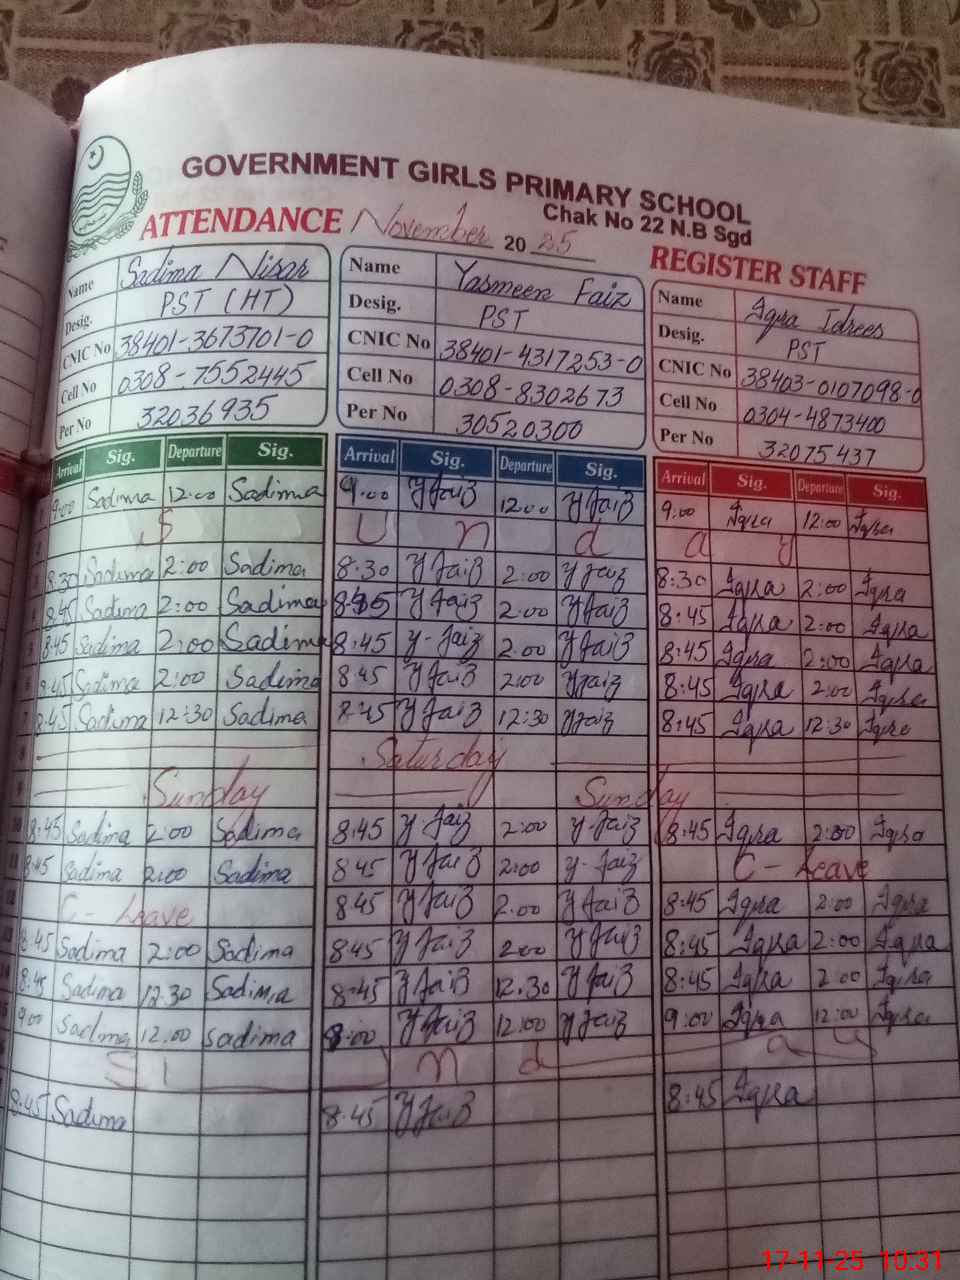 GOVERNMENT GIRLS PRIMARY SCHOOL
Chak No 22 N.B Sgd
ATTENDANCE November 2025
REGISTER STAFF
Name Sadima Nisar Name Yasmeen Faiz Name Iqra Idrees
Desig. PST (HT) Desig. PST Desig. PST
CNIC No 38401-3673701-0 CNIC No 38401-4317253-0 CNIC No 38403-0107098-0
Cell No 0308-7552445 Cell No 0308-8302673 Cell No 0304-4873400
Per No 32036935 Per No 30520300 Per No 32075437
Arrival Sig. Departure Sig. Arrival Sig. Departure Sig. Arrival Sig. Departure Sig.
9:00 Sadima 12:00 Sadima 9:00 Y Faiz 12:00 Y Faiz 9:00 Iqra 12:00 Iqra
S u n d a y
8:30 Sadima 2:00 Sadima 8:30 Y Faiz 2:00 Y Faiz 8:30 Iqra 2:00 Iqra
8:45 Sadima 2:00 Sadima 8:45 Y Faiz 2:00 Y Faiz 8:45 Iqra 2:00 Iqra
8:45 Sadima 2:00 Sadima 8:45 Y-Faiz 2:00 Y Faiz 8:45 Iqra 2:00 Iqra
8:45 Sadima 2:00 Sadima 8:45 Y Faiz 2:00 Y Faiz 8:45 Iqra 2:00 Iqra
8:45 Sadima 12:30 Sadima 8:45 Y Faiz 12:30 Y Faiz 8:45 Iqra 12:30 Iqra
Saturday
Sunday Sunday
8:45 Sadima 2:00 Sadima 8:45 Y-Faiz 2:00 Y-Faiz 8:45 Iqra 2:00 Iqra
8:45 Sadima 2:00 Sadima 8:45 Y Faiz 2:00 Y-Faiz C-Leave
C-Leave 8:45 Y Faiz 2:00 Y Faiz 8:45 Iqra 2:00 Iqra
8:45 Sadima 2:00 Sadima 8:45 Y Faiz 2:00 Y Faiz 8:45 Iqra 2:00 Iqra
8:45 Sadima 12:30 Sadima 8:45 Y Faiz 12:30 Y Faiz 8:45 Iqra 2:00 Iqra
9:00 Sadima 12:00 Sadima 9:00 Y Faiz 12:00 Y Faiz 9:00 Iqra 12:00 Iqra
S u n d a y
8:45 Sadima 8:45 Y Faiz 8:45 Iqra
17-11-25 10:31